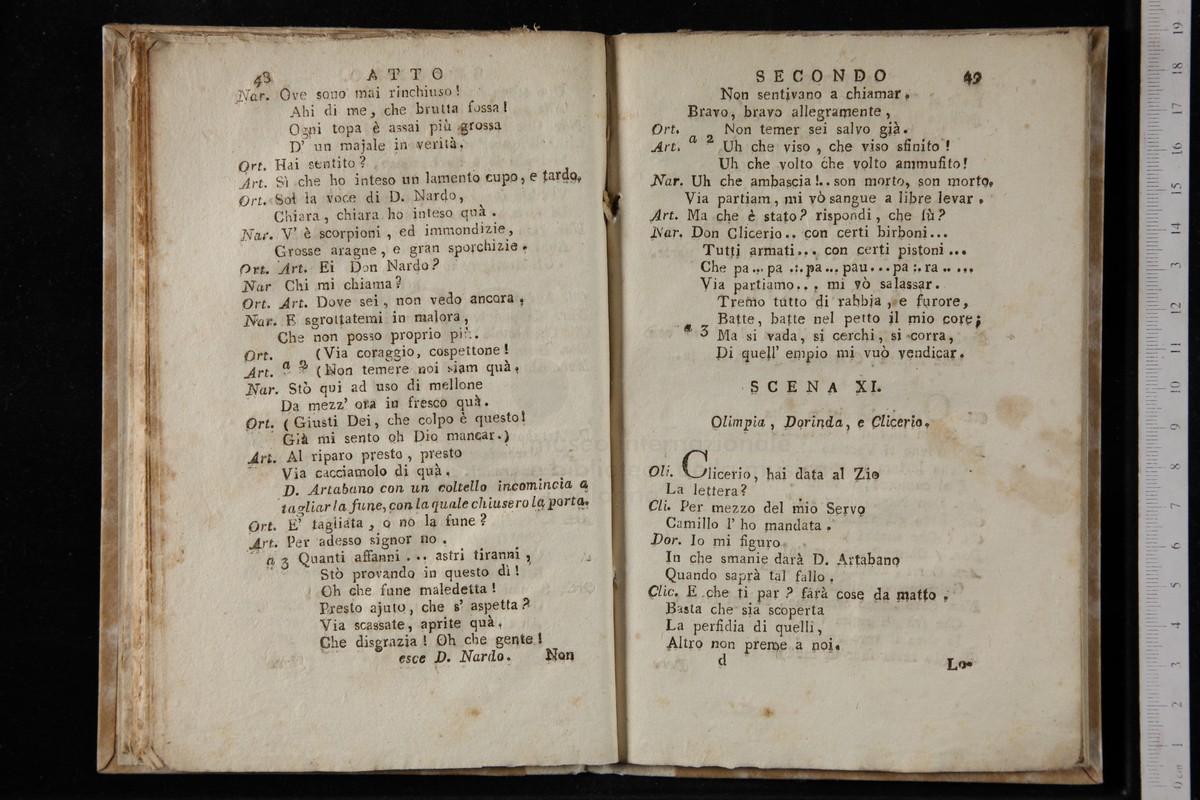 48 ATTO
Nar. Ove sono mai rinchiuso!
Ahi di me, che brutta fossa!
Ogni topa è assai più grossa
D' un majale in verità.
Ort. Hai sentito?
Art. Sì che ho inteso un lamento cupo, e tardo.
Ort. Sol la voce di D. Nardo,
Chiara, chiara ho inteso quà.
Nar. V' è scorpioni, ed immondizie,
Grosse aragne, e gran sporchizie.
Ort. Art. Ei Don Nardo?
Nar Chi mi chiama?
Ort. Art. Dove sei, non vedo ancora,
Nar. E sgrottatemi in malora,
Che non posso proprio più.
Ort. (Via coraggio, cospettone!
Art. a 2 (Non temere noi siam quà.
Nar. Stò qui ad uso di mellone
Da mezz' ora in fresco quà.
Ort. (Giusti Dei, che colpo è questo!
Già mi sento oh Dio mancar.)
Art. Al riparo presto, presto
Via cacciamolo di quà.
D. Artabano con un coltello incomincia a
tagliar la fune, con la quale chiusero la porta.
Ort. E' tagliata, o no la fune?
Art. Per adesso signor no.
a 3 Quanti affanni... astri tiranni,
Stò provando in questo dì!
Oh che fune maledetta!
Presto ajuto, che s' aspetta?
Via scassate, aprite quà.
Che disgrazia! Oh che gente!
esce D. Nardo. Non
SECONDO 49
Non sentivano a chiamar.
Bravo, bravo allegramente,
Ort. Non temer sei salvo già.
Art. a 2 Uh che viso, che viso sfinito!
Uh che volto che volto ammufito!
Nar. Uh che ambascia!.. son morto, son morto.
Via partiam, mi vò sangue a libre levar.
Art. Ma che è stato? rispondi, che fù?
Nar. Don Clicerio.. con certi birboni...
Tutti armati... con certi pistoni...
Che pa... pa .:. pa... pau... pa :. ra.. ...
Via partiamo... mi vò salassar.
Tremo tutto di rabbia, e furore,
Batte, batte nel petto il mio core;
a 3 Ma si vada, si cerchi, si corra,
Di quell' empio mi vuò vendicar.
SCENA XI.
Olimpia, Dorinda, e Clicerio.
Oli. Clicerio, hai data al Zio
La lettera?
Cli. Per mezzo del mio Servo
Camillo l' ho mandata.
Dor. Io mi figuro
In che smanie darà D. Artabano
Quando saprà tal fallo.
Clic. E che ti par? farà cose da matto.
Basta che sia scoperta
La perfidia di quelli,
Altro non preme a noi.
d Lo-